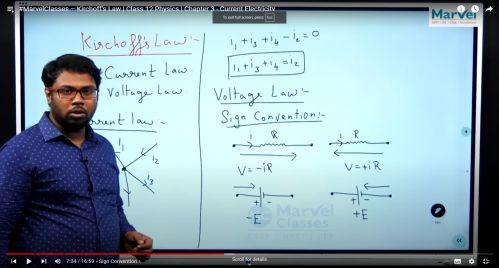 #MarvelClasses – Kirchoff's Law | Class 12 Physics | Chapter 3 - Current Electricity
To exit full screen, press Esc
Marvel
Kirchoff's Law:-
Current Law.
Voltage Law.
rrent law:-
I₁
I₂
I₃
i₁ + i₃ + i₄ - i₂ = 0
i₁ + i₃ + i₄ = i₂
Voltage Law:-
Sign Convention:-
i R
i R
V = -iR
V = +iR
+ -
+ -
-E
+E
Marvel
Classes
7:34 / 16:59 • Sign Convention
Scroll for details